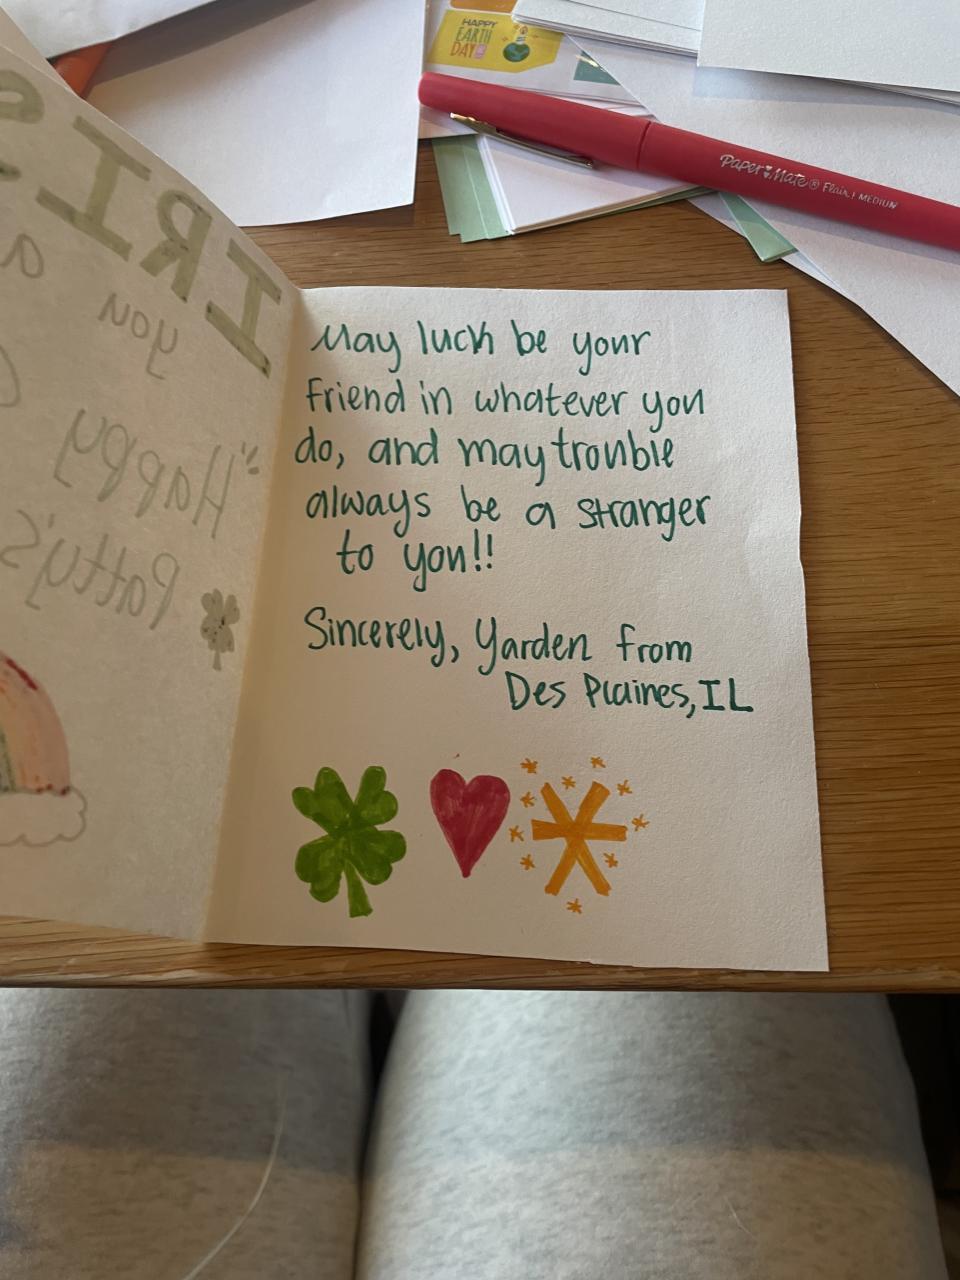 HAPPY
EARTH
DAY
Paper Mate® Flair! MEDIUM
IRIS
you a
"Happy
Patty's
May luck be your
friend in whatever you
do, and may trouble
always be a stranger
to you!!
Sincerely, Yarden from
Des Plaines, IL